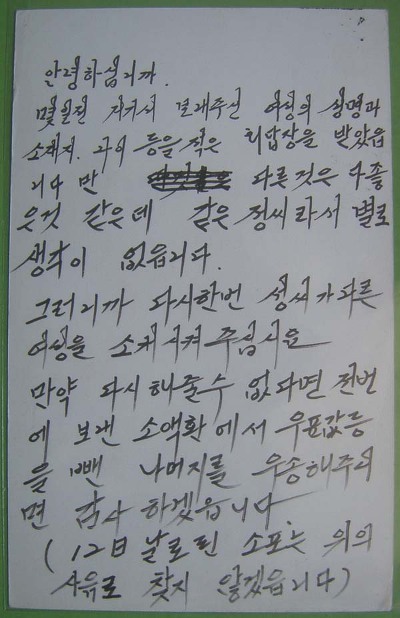 안녕하십니까.
몇일전 저켜서 결래주신 여성의 성명과
소재지. 나이 등을 적은 회답장을 받았읍
니다만 다른것은 다 좋
은것 같은데 같은 정씨라서 별로
생각이 없읍니다.
그러니까 다시한번 성씨가 다른
여성을 소개시켜주십시요
만약 다시 해줄수 없다면 전번
에 보낸 소액환에서 우표값등
을 뺀 나머지를 우송해주시
면 감사하겠읍니다
(12日 날로된 소포는 위의
사유로 찾지 않겠읍니다)